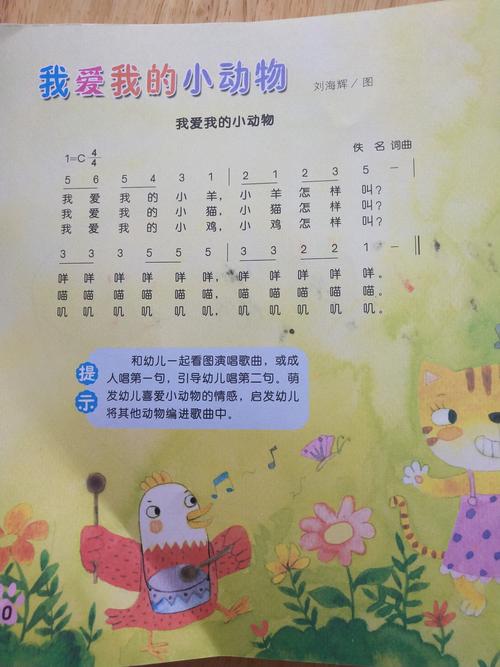 我爱我的小动物
刘海辉／图
我爱我的小动物
1=C 4/4
佚 名 词曲
5 6 5 4 3 1 | 2 1 2 3 5 – |
我 爱 我 的 小 羊， 小 羊 怎 样 叫？
我 爱 我 的 小 猫， 小 猫 怎 样 叫？
我 爱 我 的 小 鸡， 小 鸡 怎 样 叫？
3 3 3 5 5 5 | 3 3 2 2 1 – ‖
咩 咩 咩 咩 咩 咩， 咩 咩 咩 咩 咩。
喵 喵 喵 喵 喵 喵， 喵 喵 喵 喵 喵。
叽 叽 叽 叽 叽 叽， 叽 叽 叽 叽 叽。
提示
和幼儿一起看图演唱歌曲，或成
人唱第一句，引导幼儿唱第二句。萌
发幼儿喜爱小动物的情感，启发幼儿
将其他动物编进歌曲中。